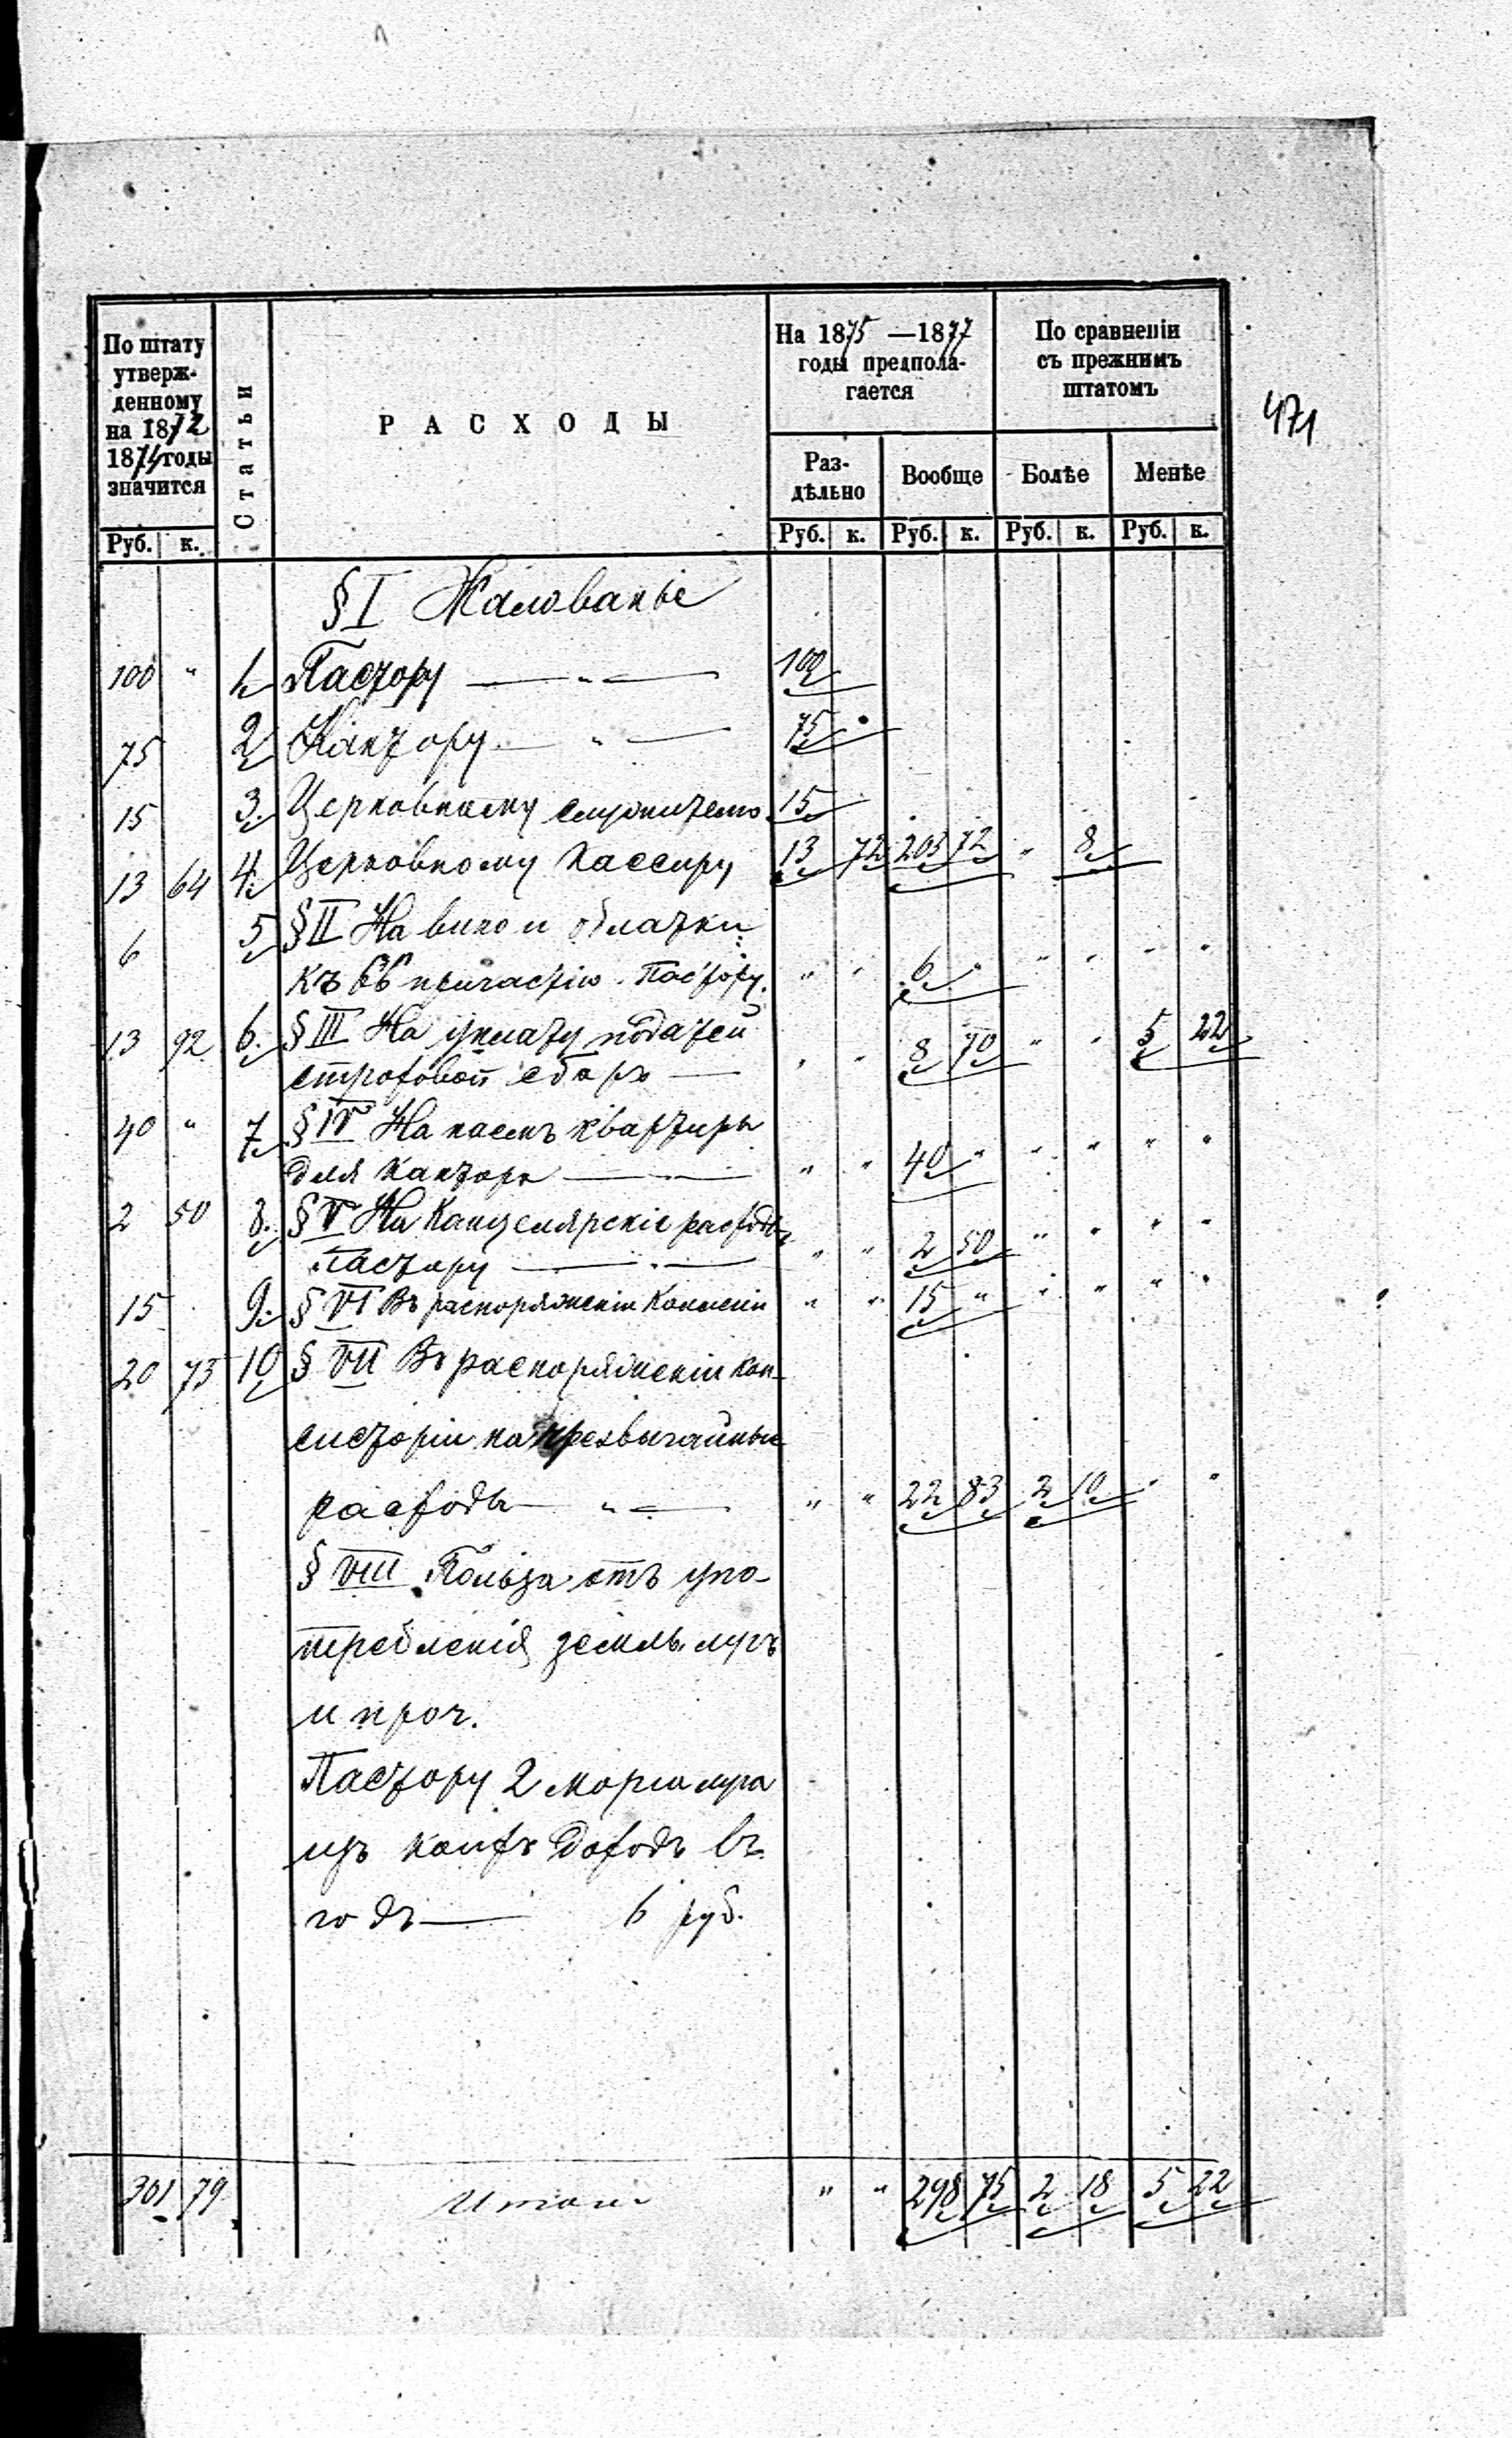 471
По штату утверж-денному на 1872 1874 годы значится
Статьи
РАСХОДЫ
На 1875 —1877 годы предпола-гается
По сравненіи съ прежнимъ штатомъ
Раз-дѣльно Вообще Болѣе Менѣе
Руб. к. Руб. к. Руб. к. Руб. к. Руб. к.
§ I Жалованье
100 " 1. Пастору — " — 100
75 2 Кантору — " — 75
15 3. Церковному служителю 15
13 64 4. Церковному Кассиру 13 72 203 72 " 8
6 5 § II На вино и облатки
къ причастію Пастору. " " 6 " " " " "
13 92 6. § III На уплату податей
сборъ — " " 8 70 " " 5 22
40 " 7 § IV На наемъ квартиры
для Кантора — " " 40 " " " " "
2 50 8. § V На Канцелярскіе расходы
Пастору — " — " " 2 50 " " " "
15 9. § VI Въ распоряженіи Коллегіи " " 15 " " " " "
20 73 10 § VII Въ распоряженіи кон-
систоріи на чрезвычайные
расходы — " — " " 22 83 2 10 " "
§ VIII Польза отъ упо-
требленія земль. лугъ
и проч.
Пастору 2 морга луга
изъ коихъ доходъ въ
годъ — 6 руб.
301 79 Итого " " 298 75 2 18 5 22